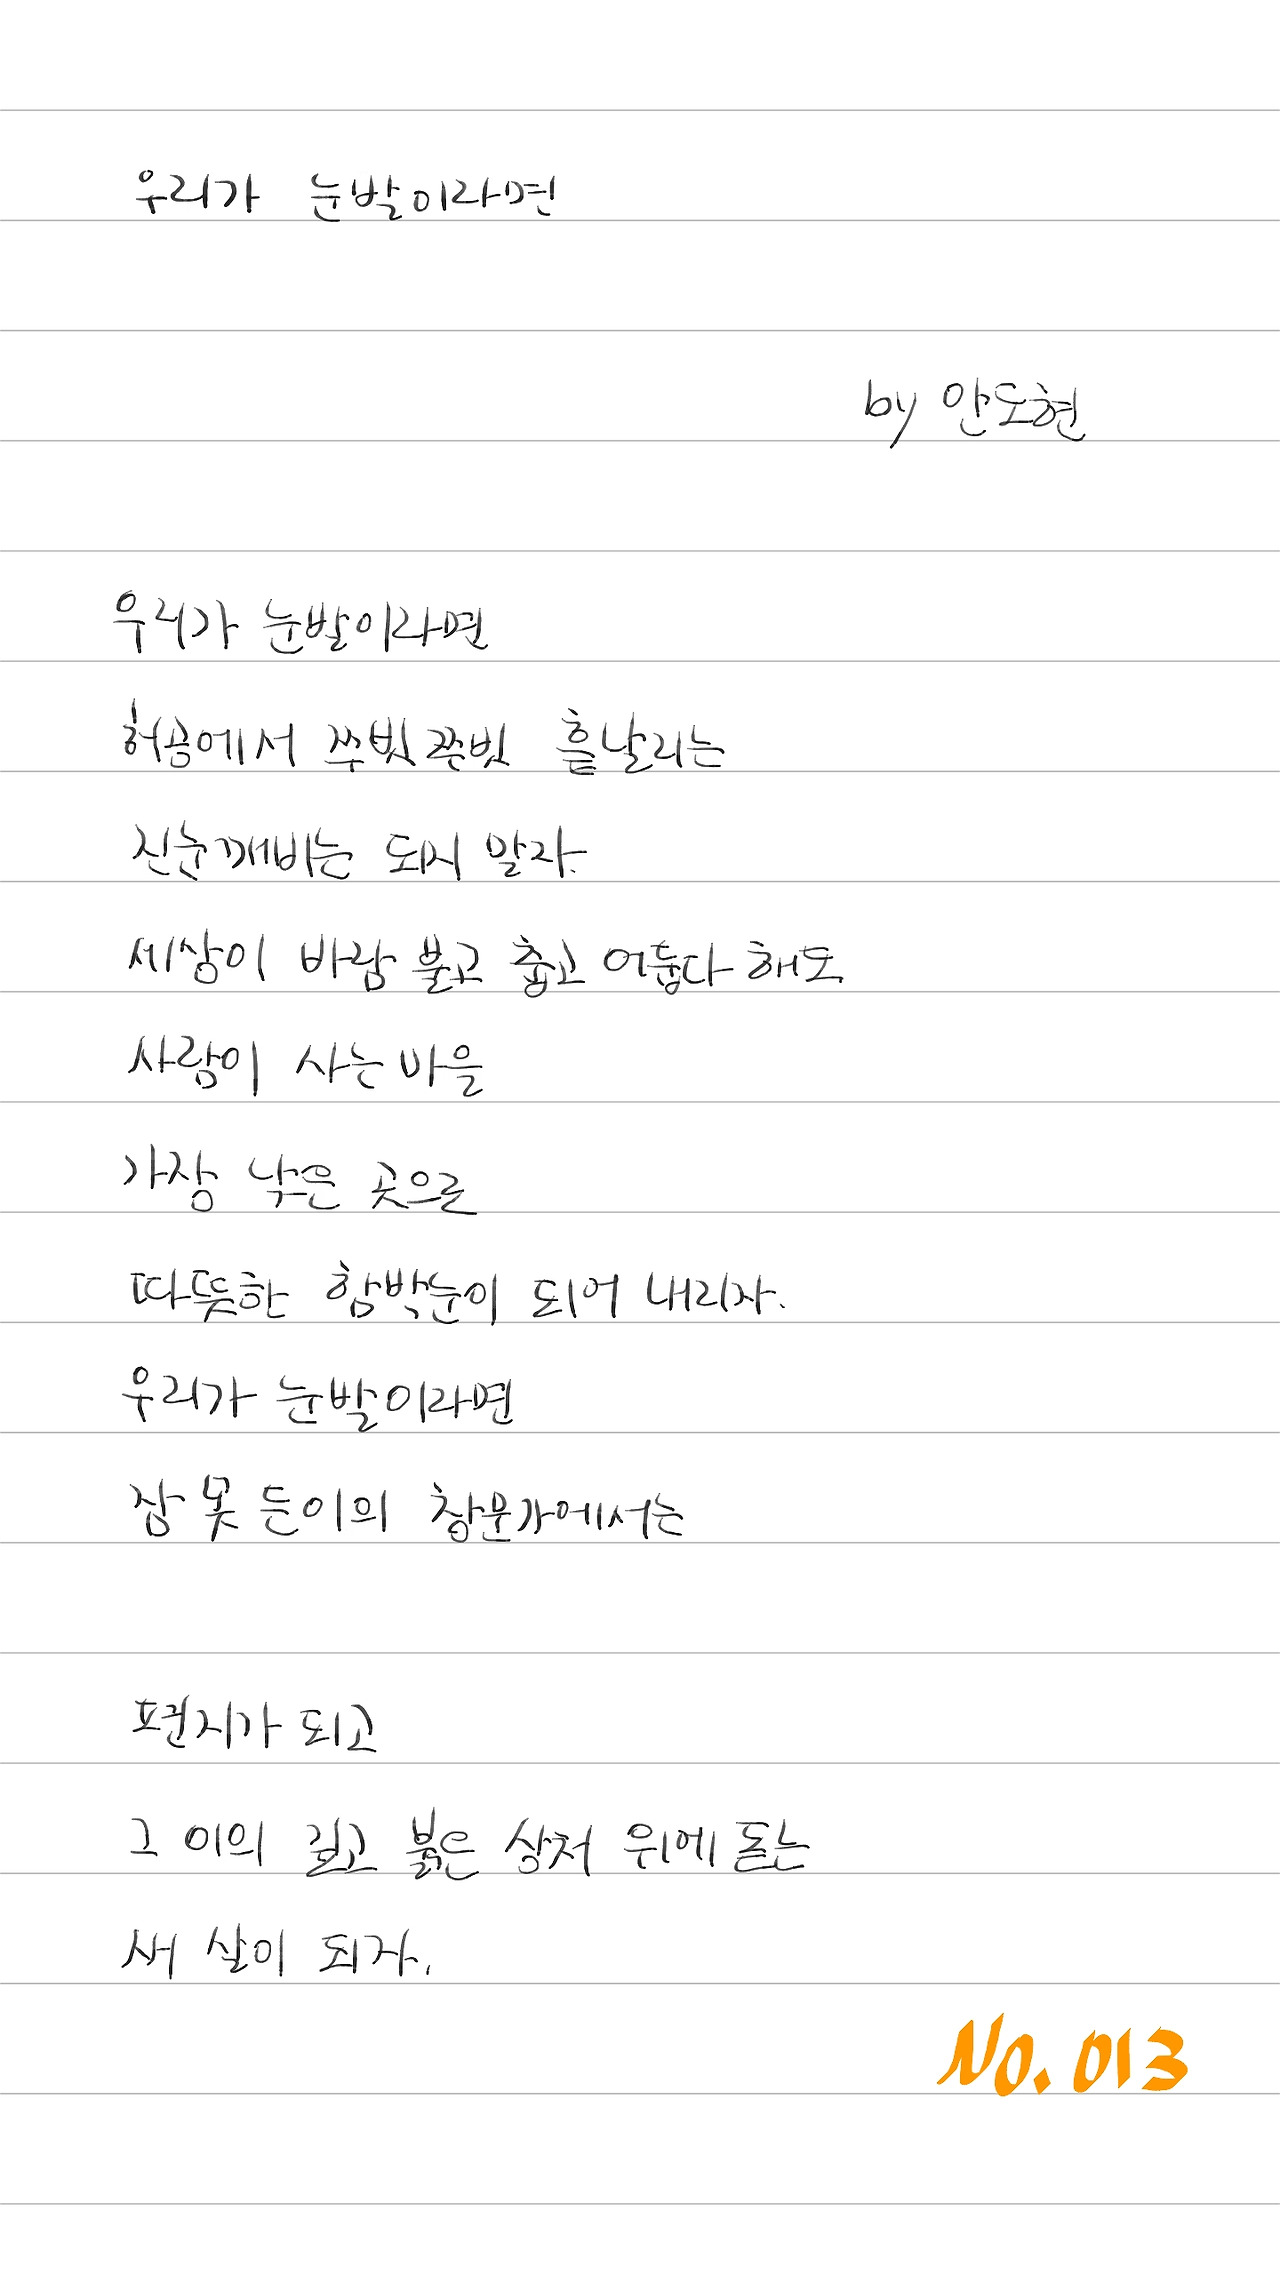 우리가 눈발이라면
by 안도현
우리가 눈발이라면
허공에서 쭈빗쭈빗 흩날리는
진눈깨비는 되지 말자.
세상이 바람 불고 춥고 어둡다 해도
사람이 사는 마을
가장 낮은 곳으로
따뜻한 함박눈이 되어 내리자.
우리가 눈발이라면
잠 못 든 이의 창문가에서는
편지가 되고
그 이의 깊고 붉은 상처 위에 돋는
새 살이 되자.
No. 013